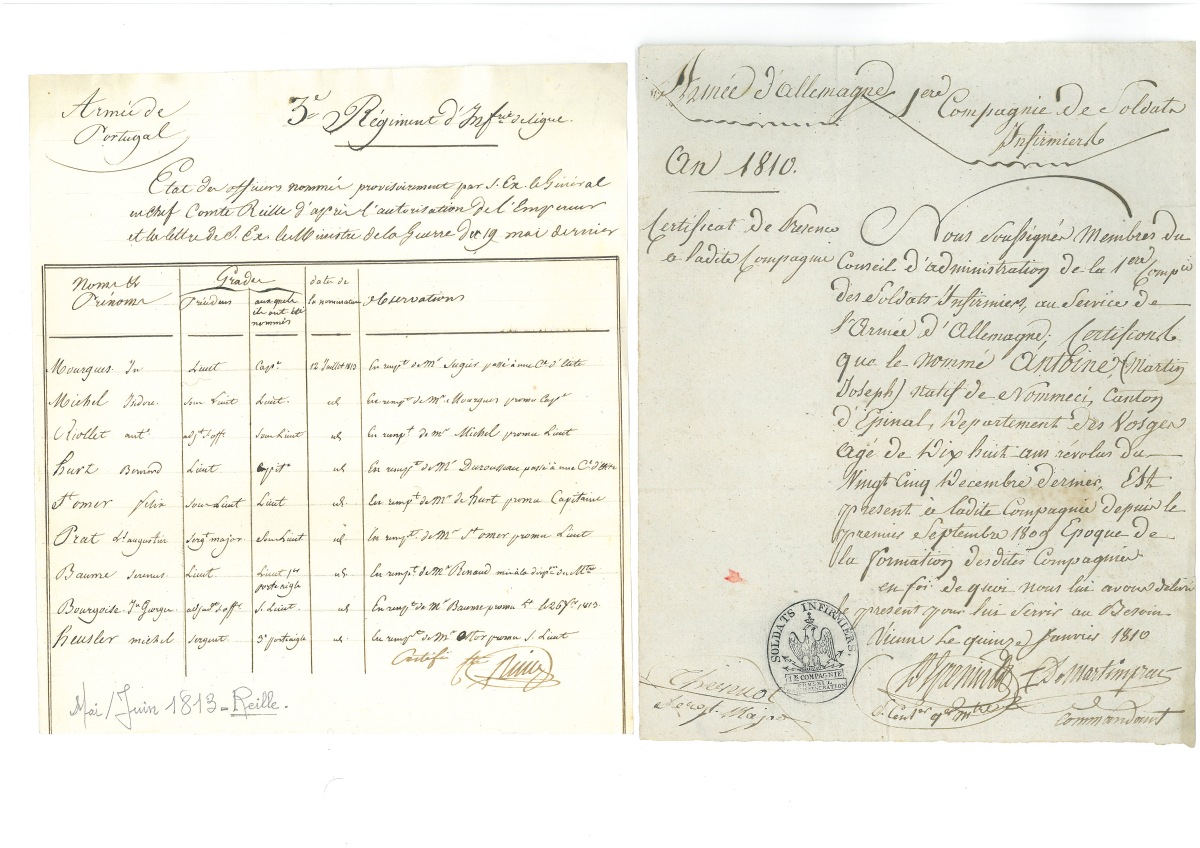 Armée de
Portugal
3e Régiment d'Infrie de ligne.
Etat des officiers nommés provisoirement par S. Ex. le Général
en chef Comte Reille d'après l'autorisation de l'Empereur
et la lettre de S. Ex. le Ministre de la Guerre du 19 mai dernier
Noms &
Prénoms
Grades
Précédens
auxquels
ils ont été
nommés
date de
la nomination
observations
Mourgues Jn Lieut Capne 12 Juillet 1813 En rempt de Mr passé à une Cie d'élite
Michel Isidore Sous Lieut Lieut. id En rempt de Mr Mourgues promu Capne
Riollet ant. adjt s/off. Sous Lieut id En rempt de Mr Michel promu Lieut
hurt Bernard Lieut Capitne id En rempt de Mr Durousseau passé à une Cie d'élite
St omer Lieut Sous Lieut Lieut id En rempt de Mr de hurt promu Capitaine
Prat Ls augustin sergt major sous Lieut id En rempt de Mr St omer promu Lieut
Baume Lieut. Lieut 1er
porte aigle id En rempt de Mr Renaud
Bourgoise Jn George adjud. s/off. s. Lieut id En rempt de Mr Baume promu
heusler michel sergent 3e porte aigle id En rempt de Mr promu s. Lieut
Certifié
Mai/Juin 1813 - Reille.
Armée d'allemagne
1ere Compagnie de Soldats
Infirmiers
An 1810.
Certificat de Presence
a ladite Compagnie
Nous Soussignés Membres du
Conseil d'administration de la 1ere Compie
des Soldats Infirmiers, au Service de
l'Armée d'Allemagne; Certifions
que le nommé Antoine (Martin
Joseph) natif de Nommeci, Canton
d'Epinal, Departement des Vosges
agé de Dix huit ans révolus du
Vingt Cinq Decembre dernier, Est
present a ladite Compagnie depuis le
premier Septembre 1809 Epoque de
la Formation desdites Compagnies
en foi de quoi nous lui avons delivré
le present pour lui Servir au Besoin
Vienne Le quinze Janvier 1810
SOLDATS INFIRMIERS.
1.E COMPAGNIE
CONSEIL
D'ADMINISTRATION
Major
Commandant